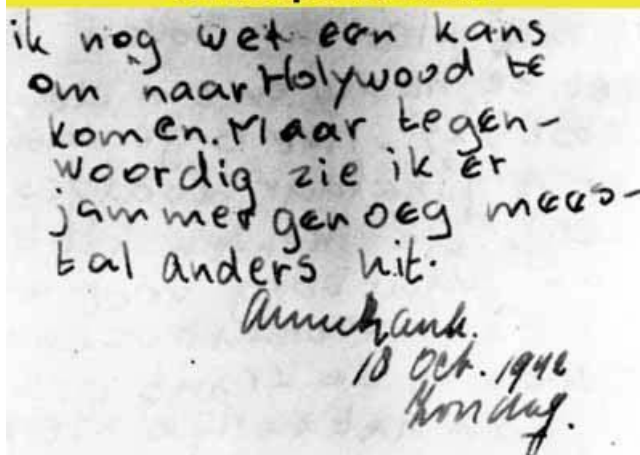 ik nog wel een kans
om naar Holywood te
komen. Maar tegen-
woordig zie ik er
jammer genoeg mees-
tal anders uit.
Annefrank.
18 Oct. 1942
Zondag.